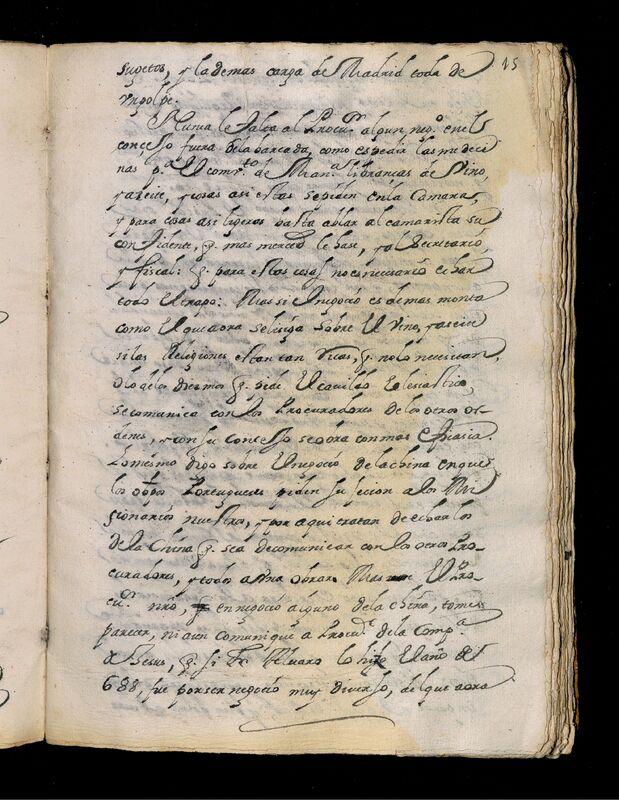 15
sugetos, y la demas carga de Madrid toda de
vn golpe.
Nunca le falta al Procu.r algun neg.o en el
concejo fuera dela barcada, como es pedir las medeci
nas p.a el com.to de Man.a libranças de Vino,
y aceite, y cosas asi estas se piden en la Camara,
y para cosas asi ligeras basta ablar al camarista su
confidente, q. mas merced le hase, y al Secretario,
y fiscal: q. para estas cosas no es necessario echar
todo el trapo: Mas si el negocio es de mas monta
como el que aora se litiga sobre el Vino, y aceite
si las Religiones estan tan ricas, q. no lo necesitan,
o lo delos Diesmos q. pide el cavildo eclesiastico,
se comunica con los Procuradores de los otros or-
denes, y con su concejo se obra con mas eficasia.
Lo mesmo digo sobre el negocio dela china en que
los obpos Portugueses piden sujecion a los Mi
sionarios nuestros, y por aqui tratan de echarlos
de la China q. sea de comunicar con los otros Pro-
curadores, y todos a vna obrar. Mas el Pro-
cu.r nro, en negocio alguno dela china, tome
parecer, ni aun comunique a Procu.r de la Comp.a
de Jesus, q. si Fr. Alvaro lo hizo el año de
688, fue por ser negocio muy diverso, del que aora